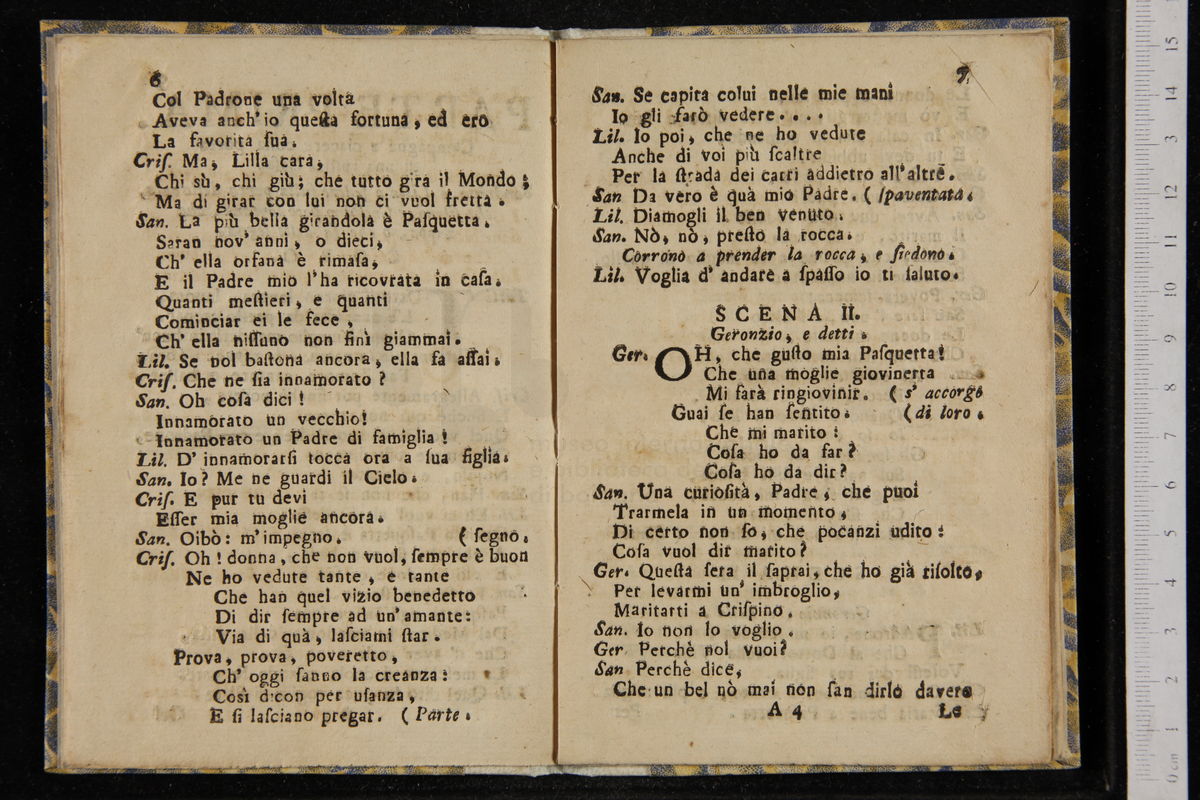 6
Col Padrone una volta
Aveva anch' io queſta fortuna, ed ero
La favorita ſua.
Criſ. Ma, Lilla cara,
Chi sù, chi giù; che tutto gira il Mondo;
Ma di girar con lui non ci vuol fretta.
San. La più bella girandola è Paſquetta.
Saran nov' anni, o dieci,
Ch' ella orfana è rimaſa,
E il Padre mio l'ha ricovrata in caſa.
Quanti meſtieri, e quanti
Cominciar ei le fece,
Ch' ella niſſuno non finì giammai.
Lil. Se nol baſtona ancora, ella fa aſſai.
Criſ. Che ne ſia innamorato?
San. Oh coſa dici!
Innamorato un vecchio!
Innamorato un Padre di famiglia!
Lil. D' innamorarſi tocca ora a ſua figlia.
San. Io? Me ne guardi il Cielo.
Criſ. E pur tu devi
Eſſer mia moglie ancora.
San. Oibò: m'impegno. ( ſegno.
Criſ. Oh! donna, che non vuol, ſempre è buon
Ne ho vedute tante, e tante
Che han quel vizio benedetto
Di dir ſempre ad un' amante:
Via di quà, laſciami ſtar.
Prova, prova, poveretto,
Ch' oggi fanno la creanza:
Così dicon per uſanza,
E ſi laſciano pregar. ( Parte.
7.
San. Se capita colui nelle mie mani
Io gli farò vedere....
Lil. Io poi, che ne ho vedute
Anche di voi più ſcaltre
Per la ſtrada dei carri addietro all'altre.
San Da vero è quà mio Padre. ( ſpaventata.
Lil. Diamogli il ben venuto.
San. Nò, nò, preſto la rocca.
Corrono a prender la rocca, e ſiedono.
Lil. Voglia d' andare a ſpaſſo io ti ſaluto.
SCENA II.
Geronzio, e detti.
Ger. OH, che guſto mia Paſquetta!
Che una moglie giovinetta
Mi farà ringiovinir. ( s' accorge
Guai ſe han ſentito. ( di loro.
Che mi marito:
Coſa ho da far?
Coſa ho da dir?
San. Una curioſità, Padre, che puoi
Trarmela in un momento,
Di certo non ſo, che pocanzi udito:
Coſa vuol dir marito?
Ger. Queſta ſera il ſaprai, che ho già riſolto,
Per levarmi un' imbroglio,
Maritarti a Criſpino.
San. Io non lo voglio.
Ger Perchè nol vuoi?
San Perchè dice,
Che un bel nò mai non ſan dirlo davero
A 4 Le